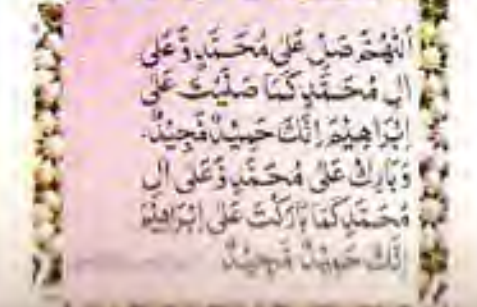 اَللّٰهُمَّ صَلِّ عَلٰى مُحَمَّدٍ وَّعَلٰى
اٰلِ مُحَمَّدٍ كَمَا صَلَّيْتَ عَلٰى
اِبْرَاهِيْمَ اِنَّكَ حَمِيْدٌ مَّجِيْدٌ.
وَبَارِكْ عَلٰى مُحَمَّدٍ وَّعَلٰى اٰلِ
مُحَمَّدٍ كَمَا بَارَكْتَ عَلٰى اِبْرَاهِيْمَ
اِنَّكَ حَمِيْدٌ مَّجِيْدٌ